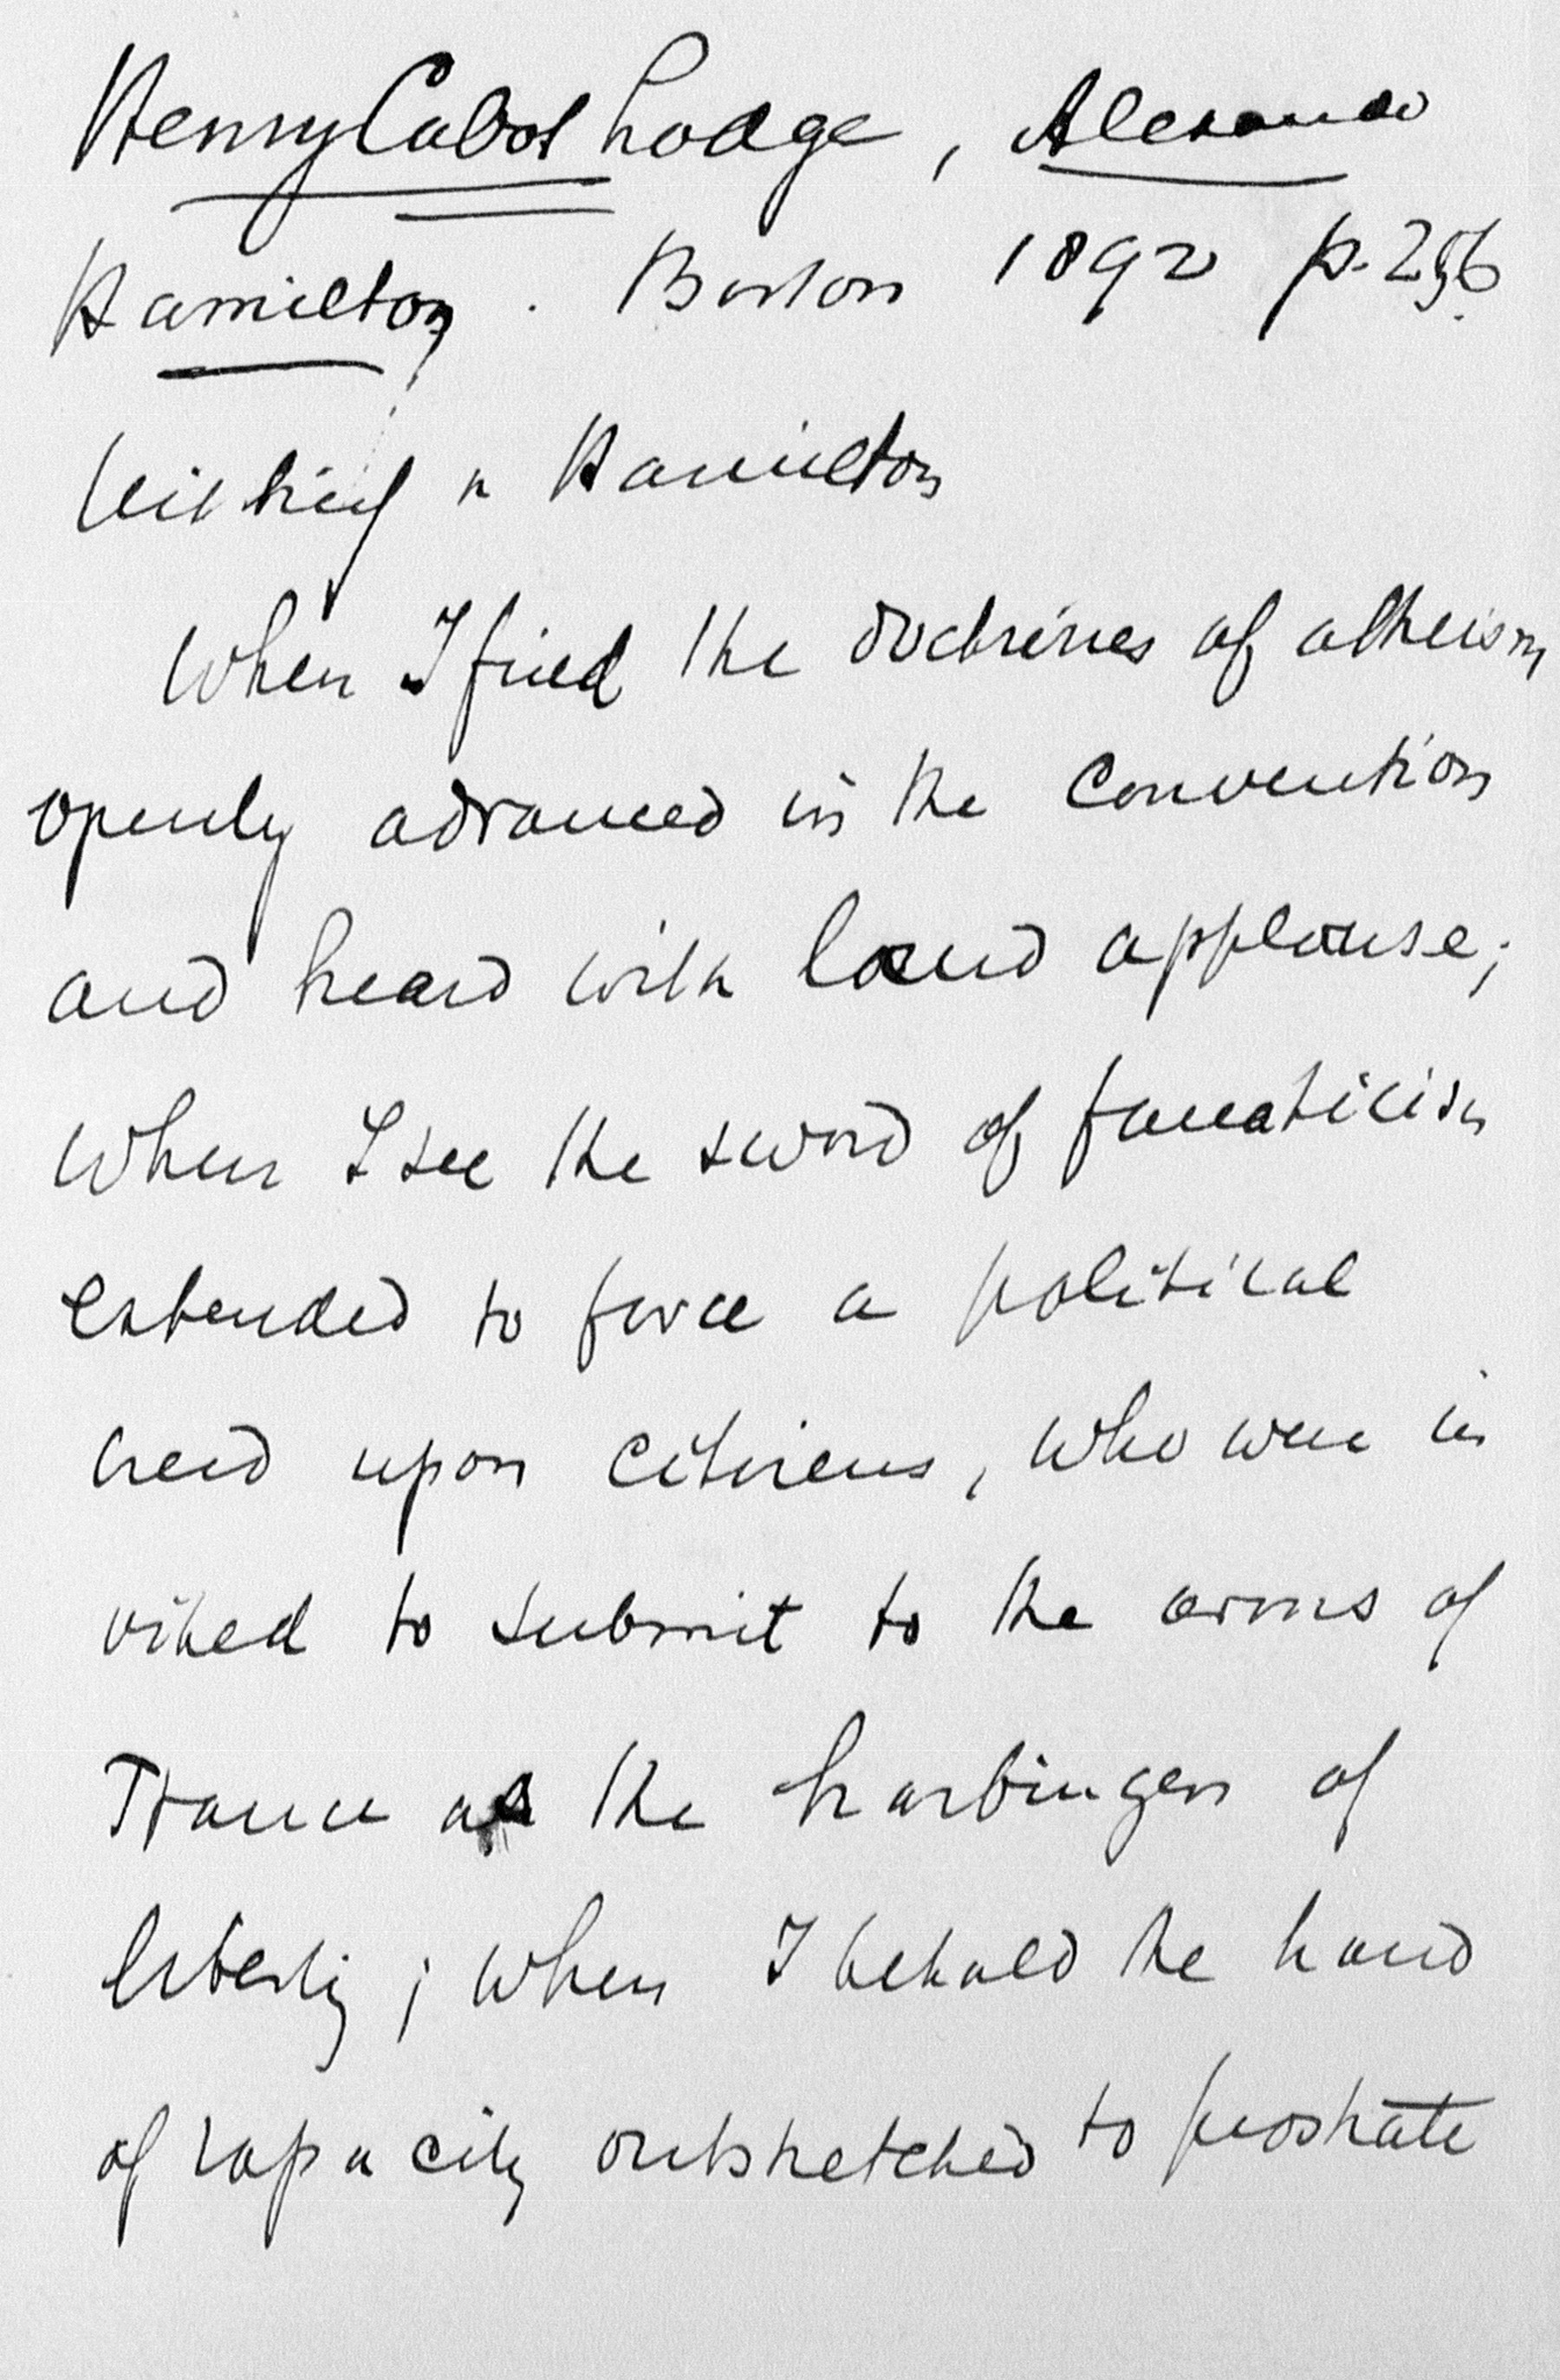 Henry Cabot Lodge, Alexander
Hamilton. Boston 1892 p. 256
Hamilton
When I find the doctrines of atheism
openly advanced in the Convention
and heard with loud applause;
When I see the sword of fanaticism
extended to force a political
creed upon citizens, who were in
vited to submit to the arms of
France as the harbingers of
liberty; when I behold the hand
of rapacity outstretched to prostrate